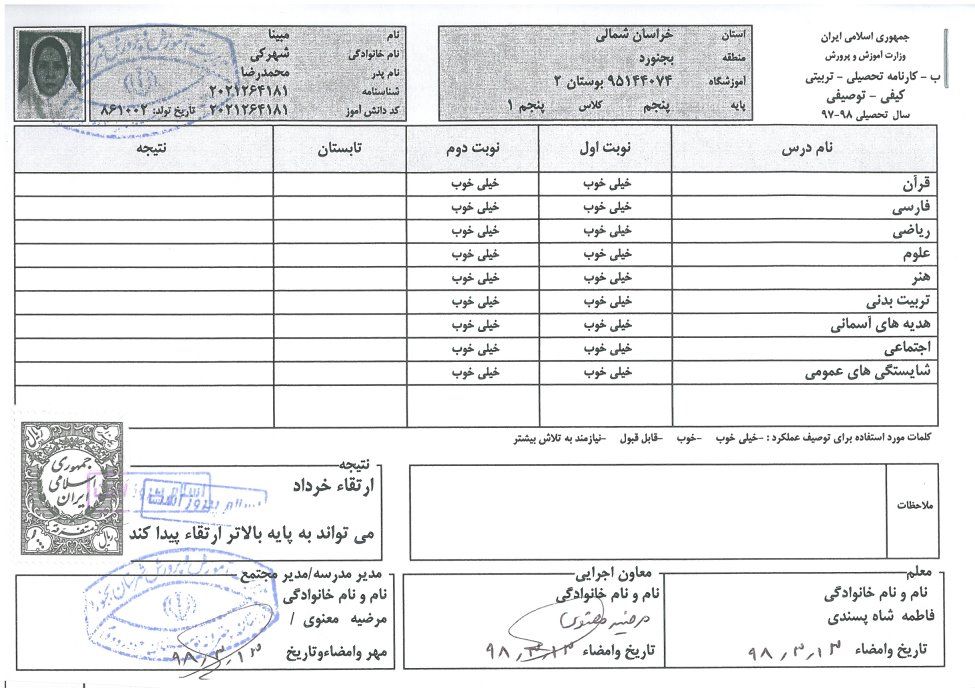 جمهوری اسلامی ایران
وزارت آموزش و پرورش
ب - کارنامه تحصیلی - تربیتی
کیفی - توصیفی
سال تحصیلی ۹۸-۹۷
استان خراسان شمالی
منطقه بجنورد
آموزشگاه ۹۵۱۴۴۰۷۴ بوستان ۲
پایه پنجم کلاس پنجم ۱
نام مبینا
نام خانوادگی شهرکی
نام پدر محمدرضا
شناسنامه ۲۰۲۱۲۶۴۱۸۱
کد دانش آموز ۲۰۲۱۲۶۴۱۸۱ تاریخ تولد: ۸۶۱۰۰۲
نام درس نوبت اول نوبت دوم تابستان نتیجه
قرآن خیلی خوب خیلی خوب
فارسی خیلی خوب خیلی خوب
ریاضی خیلی خوب خیلی خوب
علوم خیلی خوب خیلی خوب
هنر خیلی خوب خیلی خوب
تربیت بدنی خیلی خوب خیلی خوب
هدیه های آسمانی خیلی خوب خیلی خوب
اجتماعی خیلی خوب خیلی خوب
شایستگی های عمومی خیلی خوب خیلی خوب
کلمات مورد استفاده برای توصیف عملکرد : -خیلی خوب -خوب -قابل قبول -نیازمند به تلاش بیشتر
ملاحظات
نتیجه
ارتقاء خرداد
می تواند به پایه بالاتر ارتقاء پیدا کند
ریال
جمهوری
اسلامی
ایران
متفرقه
ریال
معلم
نام و نام خانوادگی
فاطمه شاه پسندی
تاریخ وامضاء ۹۸,۳,۱۳
معاون اجرایی
نام و نام خانوادگی
مرضیه معنوی
تاریخ وامضاء ۹۸,۳,۱۳
مدیر مدرسه/مدیر مجتمع
نام و نام خانوادگی
مرضیه معنوی /
مهر وامضاءوتاریخ ۹۸,۳,۱۳